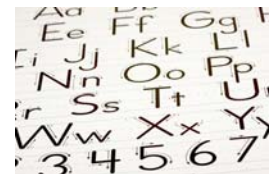 Aa Ee Ff Gg
Ii Jj Kk Ll
Nn Oo Pp
r Ss Tt U
Ww Xx Yy
3 4 5 6 7